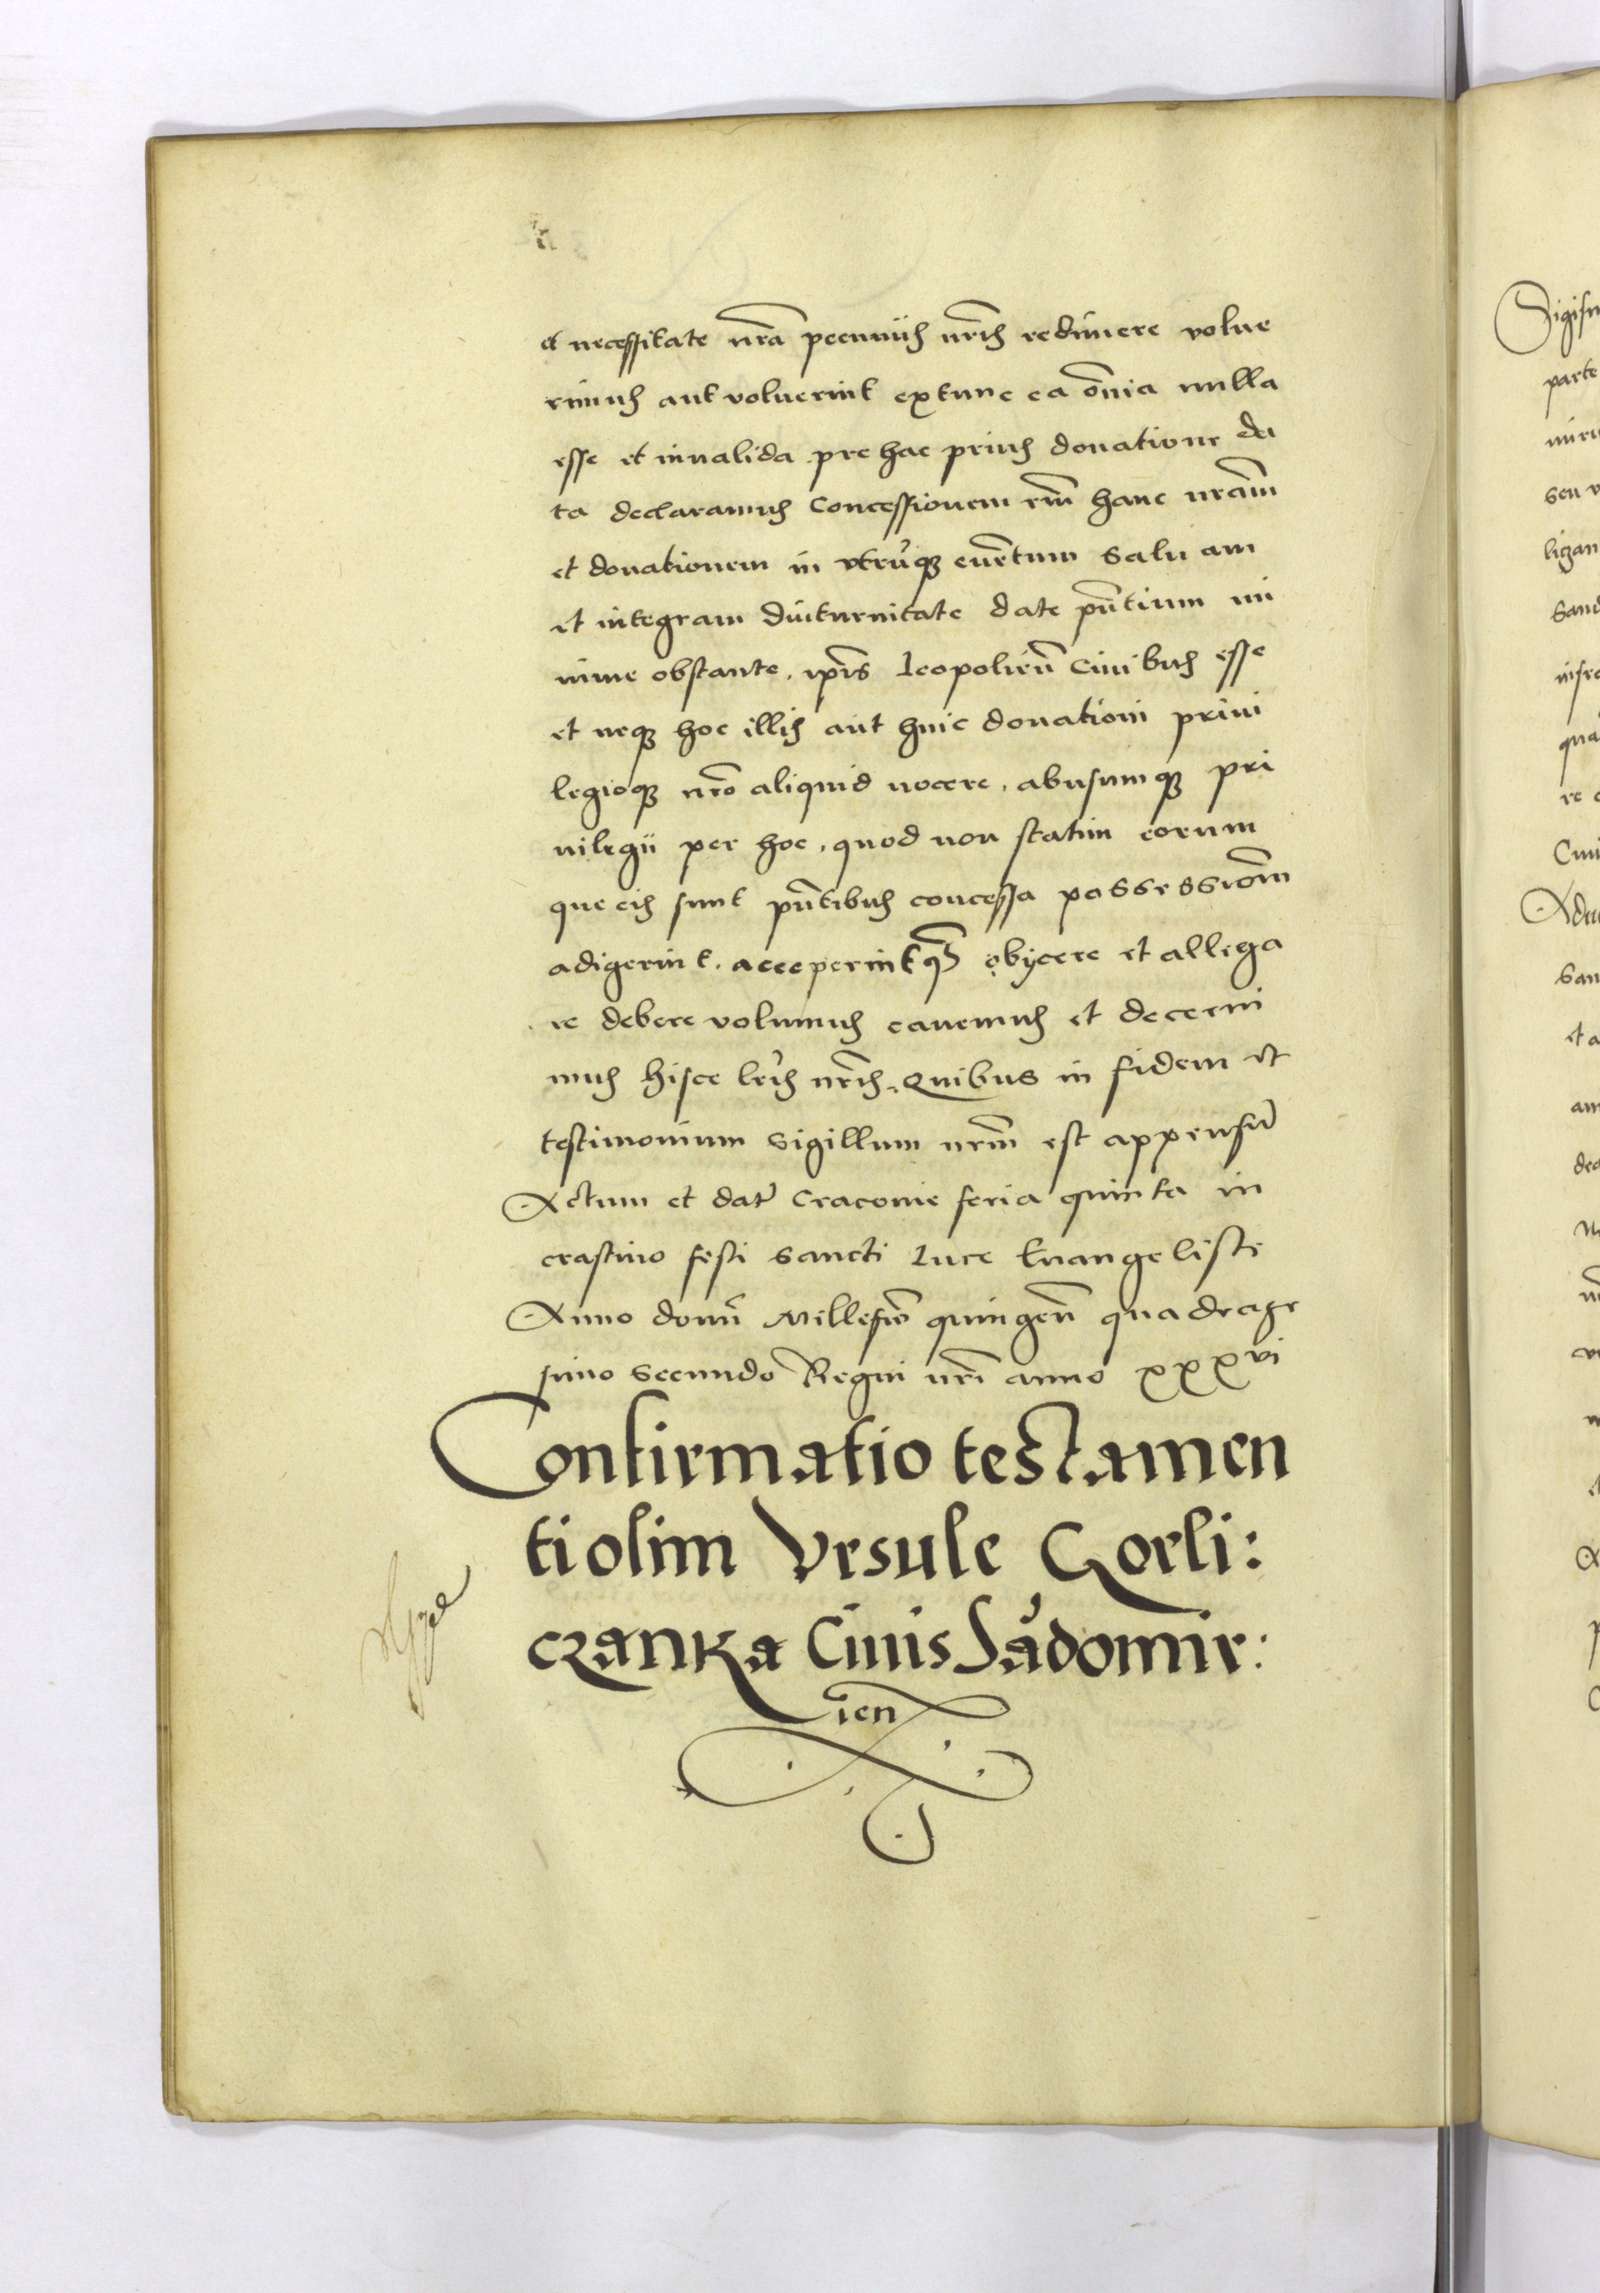 et necessitate nrã pecuniis nris redimere volue
rimus aut voluerint extunc ea oñia nulla
esse et inualida pre hac prius donatione da
ta declaramus Concessionem nrm̃ hanc nram̃
et donationem in vtrũq3 euẽtum Saluam
et integram diuturnitate date pñtium mi
nime obstante, ip̃is Leopolieñ Ciuibus esse
et neq3 hoc illis aut huic donationi priui
legioq3 nrõ aliquid nocere, abusumq3 pri
uilegii per hoc, quod non statim eorum
que eis sunt pñtibus concessa possessiom̃
adigerint, acceperintq3 obijcere et allega
re debere volumus cauemus et decerni
mus hisce lrĩs nrĩs. Quibus in fidem et
testimonium Sigillum nrm̃ est appensũ
Actum et dat̃ Cracouie feria quinta in
crastino festi Sancti Luce Euangeliste
Anno domĩ Millesimõ quingeñ quadrage
simo Secundo Regni nrĩ anno xxxvi
Confirmatio testamen
ti olim Vrsule Gorli:
czanka Ciuis Sãdomir:
ien
Sigism
parte
seu v
ligan
Sand
infra
qua
re
Ciui
Adu
San
et a
am